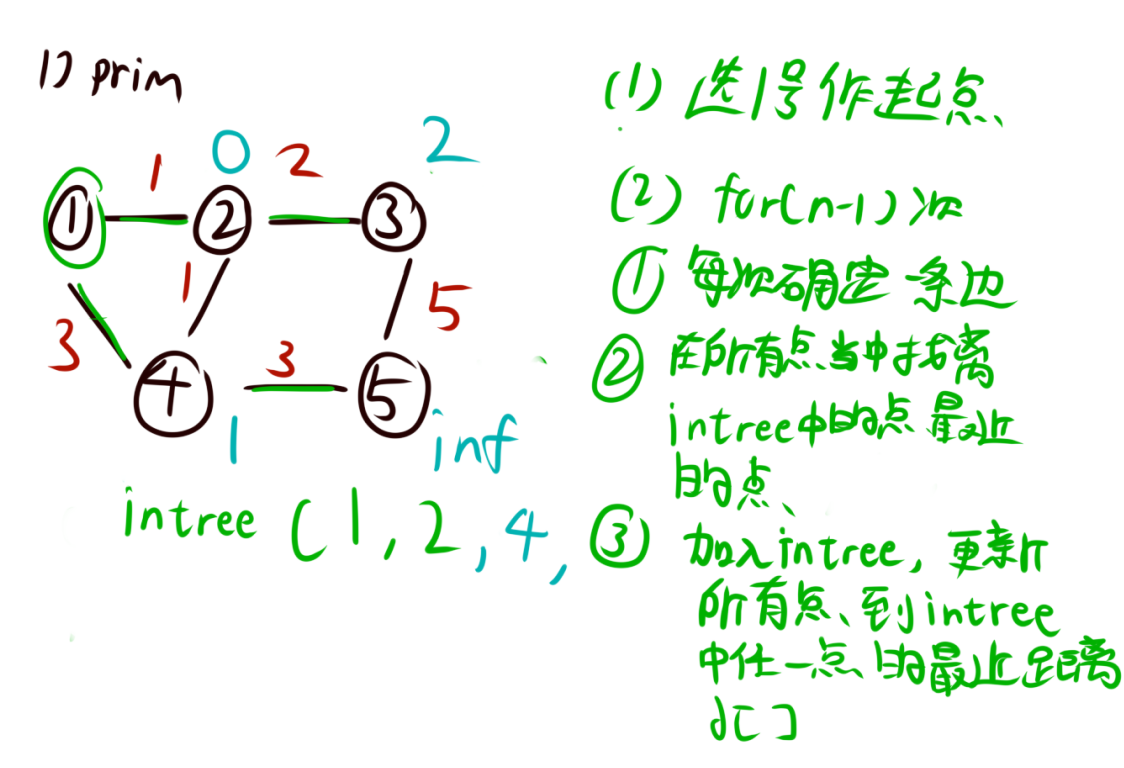 1) prim
1
0
2
2
① ② ③
1
3
5
④ 3 ⑤
1
inf
intree (1, 2, 4,
(1) 选1号作起点
(2) for(n-1)次
① 每次确定一条边
② 在所有点当中找离
intree中的点最近
的点、
③ 加入intree, 更新
所有点、到intree
中任一点的最近距离
d[ ]